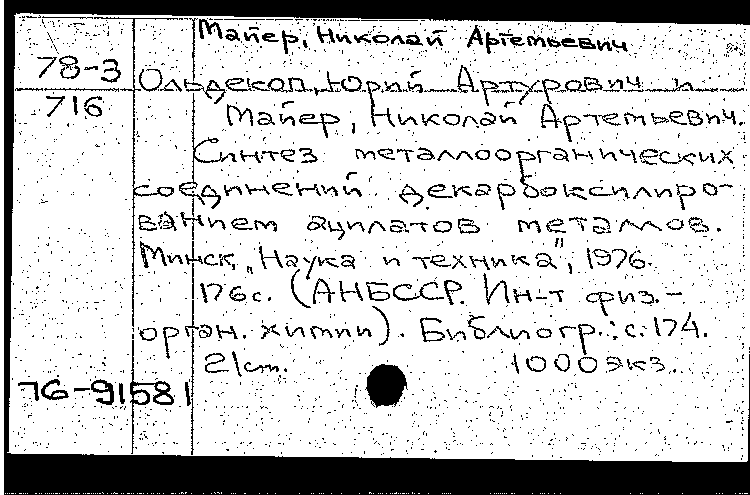 Майер, Николай Артемьевич
78-3
Ольдекоп, Юрий Артурович и
716
Майер, Николай Артемьевич.
Синтез металлоорганических
соединений декарбоксилиро-
ванием ацилатов металлов.
Минск, "Наука и техника", 1976.
176с. (АНБССР. Ин-т физ.-
орган. химии). Библиогр.: с. 174.
21см. 1000экз.
76-91581